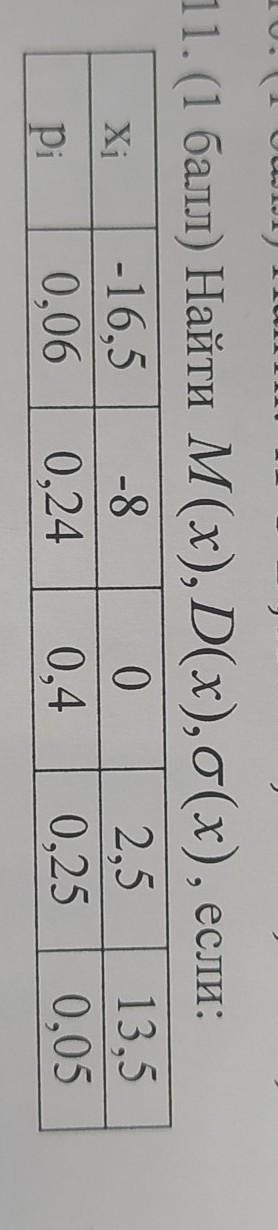 11. (1 балл) Найти M(x), D(x), σ(x), если:
xᵢ -16,5 -8 0 2,5 13,5
pᵢ 0,06 0,24 0,4 0,25 0,05